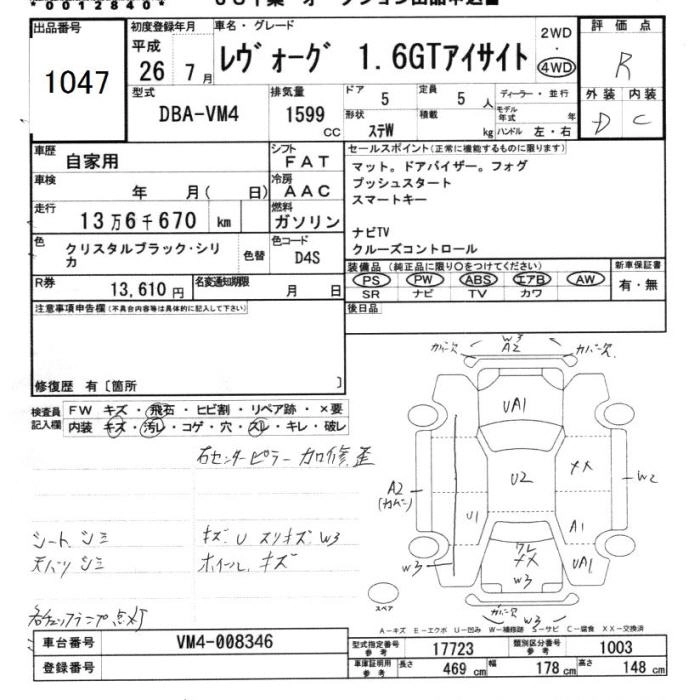 *0012840*
出品番号
1047
初度登録年月
平成
26 7月
車名・グレード
レヴォーグ 1.6GTアイサイト
2WD
・
4WD
評価点
R
外装 内装
D C
型式
DBA-VM4
排気量
1599
CC
ドア
5
定員
5 人
形状
ステW
積載
kg
ディーラー・並行
モデル年式
年
ハンドル 左・右
車歴
自家用
シフト
FAT
車検
年 月( 日)
冷房
AAC
走行
13万6千670 km
燃料
ガソリン
色
クリスタルブラック・シリカ
色替
色コード
D4S
R券
13,610 円
名変通知期限
月 日
セールスポイント(正常に機能するものに限ります)
マット。ドアバイザー。フォグ
プッシュスタート
スマートキー
ナビTV
クルーズコントロール
装備品(純正品に限り○をつけてください)
PS PW ABS エアB AW
SR ナビ TV カワ
新車保証書
有・無
後日品
注意事項申告欄(不具合内容等は具体的に記入して下さい)
修復歴 有〔箇所 〕
検査員
記入欄
FW キズ・飛石・ヒビ割・リペア跡・×要
内装 キズ・汚レ・コゲ・穴・スレ・キレ・破レ
右センターピラー 加修歪
シート シミ
天バリ シミ
キズ U スリキズ W3
ホイール キズ
各チェックランプ点灯
カバー欠
W3
A2
カバー欠
UA1
U2
メメ
W2
A2
(カバー)
U1
A1
UA1
W3
ワレ
メメ
W3
カバー欠
W3
スペア
A-キズ E-エクボ U-凹み W-補修跡 S-サビ C-腐食 XX-交換済
車台番号
VM4-008346
登録番号
型式指定番号
参考
17723
類別区分番号
参考
1003
車庫証明用
参考
長さ
469 cm
幅
178 cm
高さ
148 cm